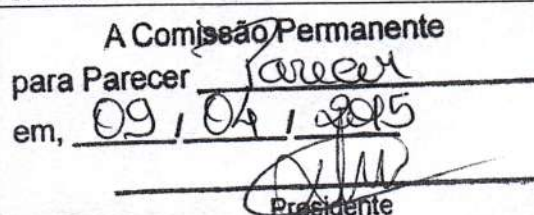 A Comissão Permanente
para Parecer Parecer
em, 09 / 04 / 2015
Presidente